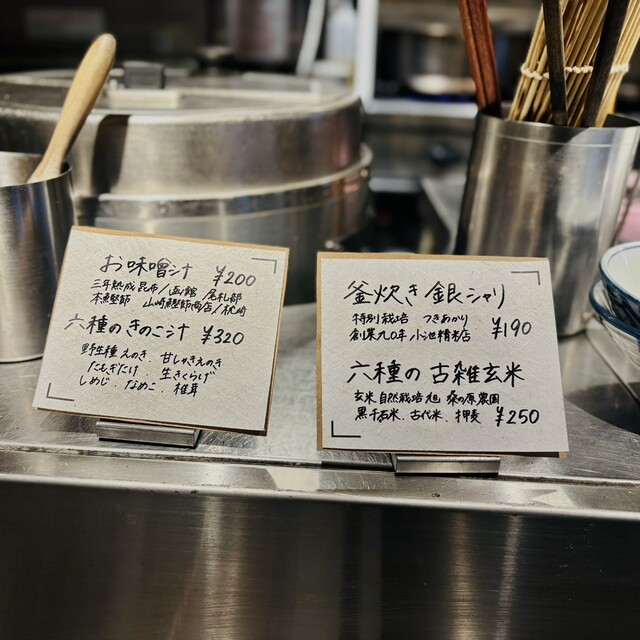 お味噌汁 ¥200
三年熟成昆布/函館/尾札部
本魚堅節 山崎鰹節商店/枕崎
六種のきのこ汁 ¥320
野生種えのき、甘しゃきえのき
たもぎたけ、生きくらげ
しめじ、なめこ、椎茸
釜炊き銀シャリ
特別栽培 つきあかり
創業九〇年 小池精米店 ¥190
六種の古雑玄米
玄米、自然栽培旭 桑の原農園
黒千石米、古代米、押麦 ¥250